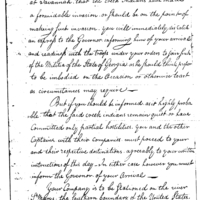 at Savannah that the Creek Indians have made
a formidable invasion or should be on the point of
making such invasion you will immediately send
an express to the Governor informing him of your arrival
and readiness with the troops under your orders to join such
of the Militia of the State of Georgia as he should think proper
to be imbodied on the Occasion or otherwise to act
as circumstances may require —
But if you should be informed and highly probable
that the said Creek indians remain quiet or have
committed only partial hostilities, you and the other
Captains with their companies must proceed to your
and their respective destinations, agreeably to your written
instructions of this day. In either case however you must
inform the Governor of your arrival.
Your Company is to be stationed on the river
St Marys, the southern boundary of the United States